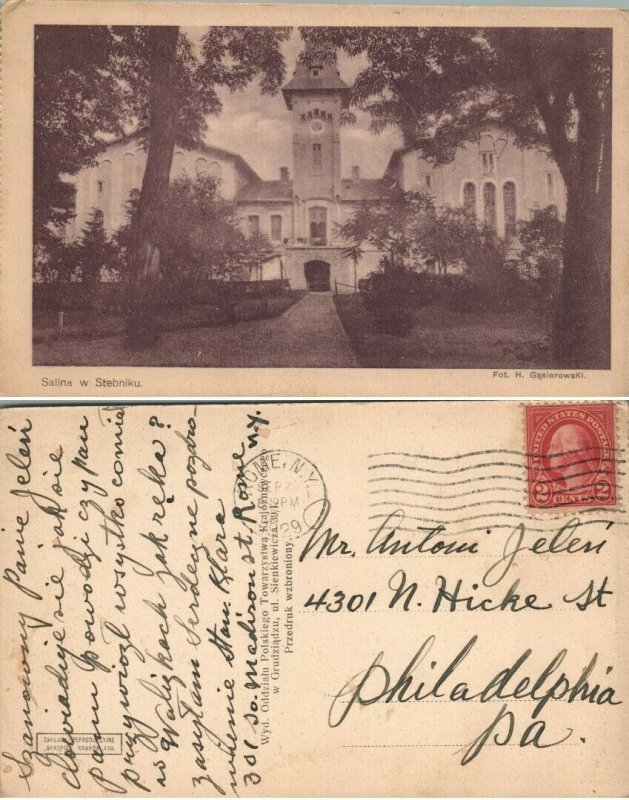 Salina w Stebniku.
Fot. H. Gąsiorowski.
Szanowny Panie Jeleń
dowiaduje się jak się
panu powodzi czy pan
przywiozł wszystko comiał
w Walizkach jak ręka?
zasyłam Serdeczne pozdro-
wienie Stan. Klara
301 so. Madison st. Rome N.Y.
Wyd. Oddziału Polskiego Towarzystwa Krajoznawczego
w Grudziądzu, ul. Sienkiewicza 39/1.
Przedruk wzbroniony.
ZAKŁADY REPRODUKCYJNE
"AKROPOL" KRAKÓW
ROME, N.Y.
PM
29
UNITED STATES POSTAGE
2 CENTS 2
Mr. Antoni Jeleń
4301 N. Hicke St
Philadelphia
Pa.